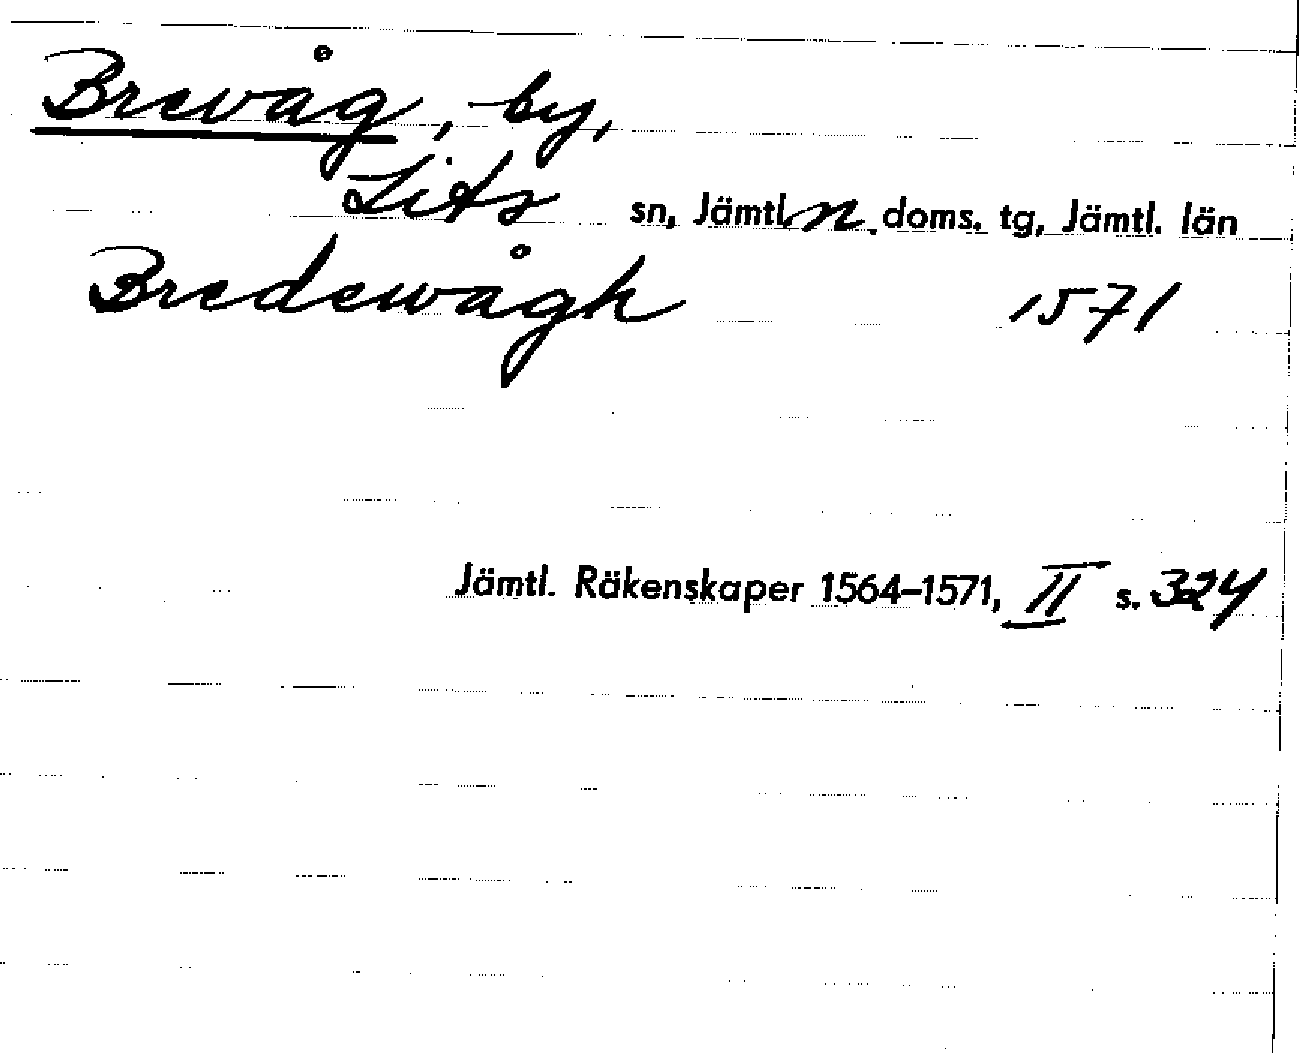 Brevåg, by,
Lits sn, Jämtl. n. doms. tg, Jämtl. län
Bredewågh 1571
Jämtl. Räkenskaper 1564–1571, II s. 324